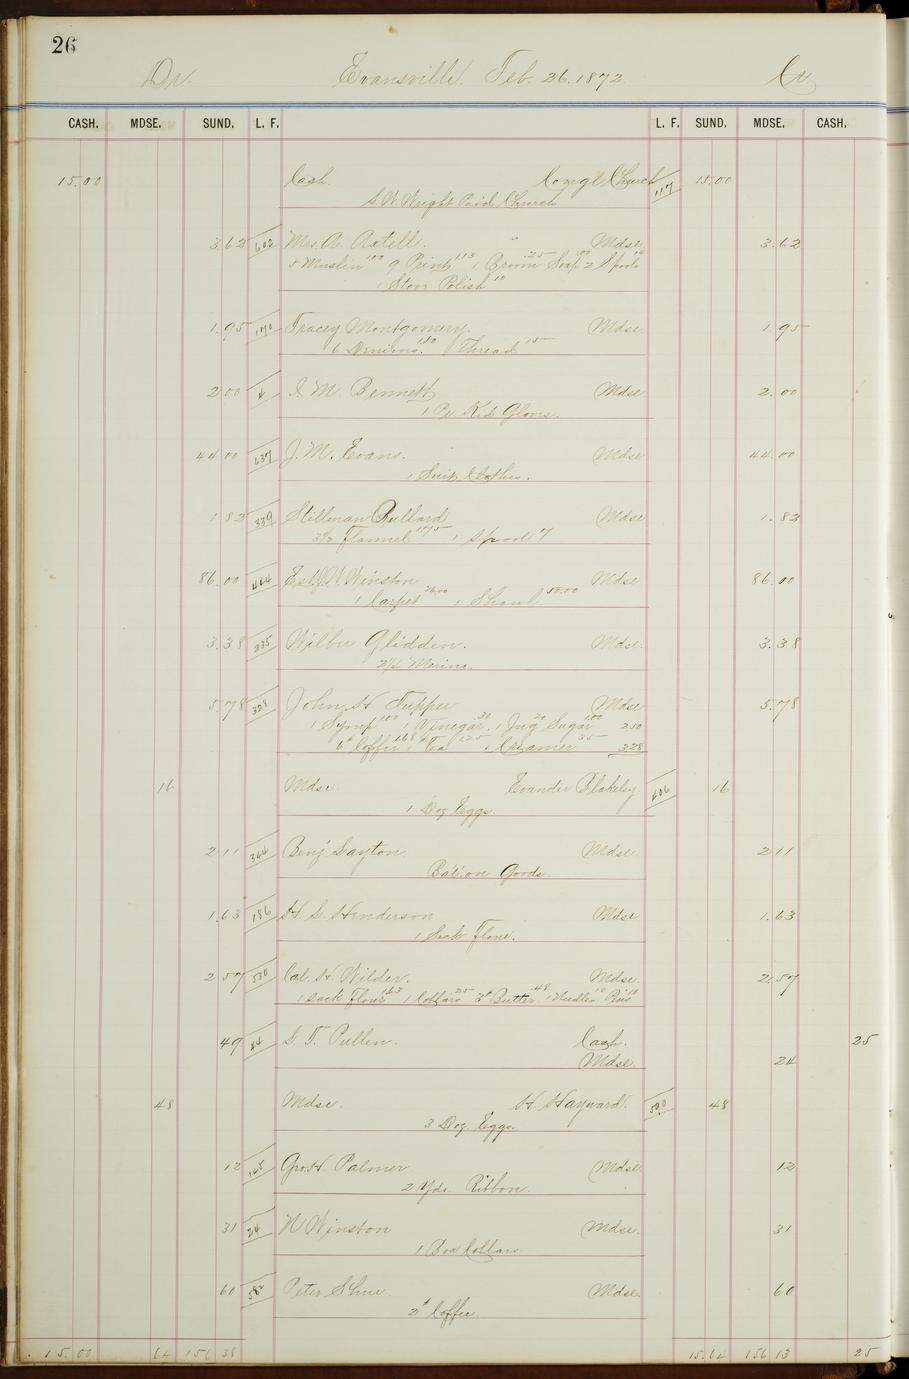 26
Dr Evansville Feb. 26. 1872 Cr
CASH. MDSE. SUND. L. F. L. F. SUND. MDSE. CASH.
15.00 Cash. Congl Church 117 15.00
S. W Wright Paid Church
3.62 602 Mrs. A. Axtell. " Mdse 3.62
5 Muslin 100 9 Print 113 1 Broom 25 Soap 100 2 Spools 14
1 Stove Polish 10
1.95 170 Tracey Montgomery. Mdse 1.95
6 Denims. 1.80 Thread 15
2 00 M. Bennett Mdse 2.00
1 Pr Kid Gloves.
44 00 637 J. M. Evans. Mdse 44.00
1 Suit Clothes.
1 82 339 Stillman Bullard Mdse 1.82
3 1/2 Flannel 175 1 Spool 7
86.00 464 Est J W Winston Mdse 86.00
1 Carpet 1 Shawl
3.38 235 Wilber Glidden. Mdse. 3.38
2 1/4 Merino.
5.78 328 John H. Tupper Mdse 5.78
1 Syrup 100 1 Vinegar. 30 1 Jug 20 Sugar 1.00 2.50
6# Coffee 1.68 1# Tea 1.25 1 Creamer 35 3.28
16 Mdse. Evander Blakeley. 406 16
1 Doz Eggs.
2 11 344 Benj Dayton. Mdse. 2 11
Bal. on Goods
1.63 186 H. S. Henderson Mdse 1.63
1 Sack Flour.
2 57 530 Cal. H. Wilder. Mdse. 2.57
1 Sack Flour 1.63 1 Collars 25 2# Butter 48 1 Needles 10 Pins 10
49 84 S. T. Pullen. Cash. 25
Mdse. 24
48 Mdse. H. Hayward. 590 48
3 Doz. Eggs.
12 145 Geo. H. Palmer Mdse 12
2 Yds. Ribbon.
31 24 W Winston Mdse. 31
1 Box Collars
60 582 Peter Shue Mdse. 60
2# Coffee.
15.00 64 156 38 15.64 156 13 25